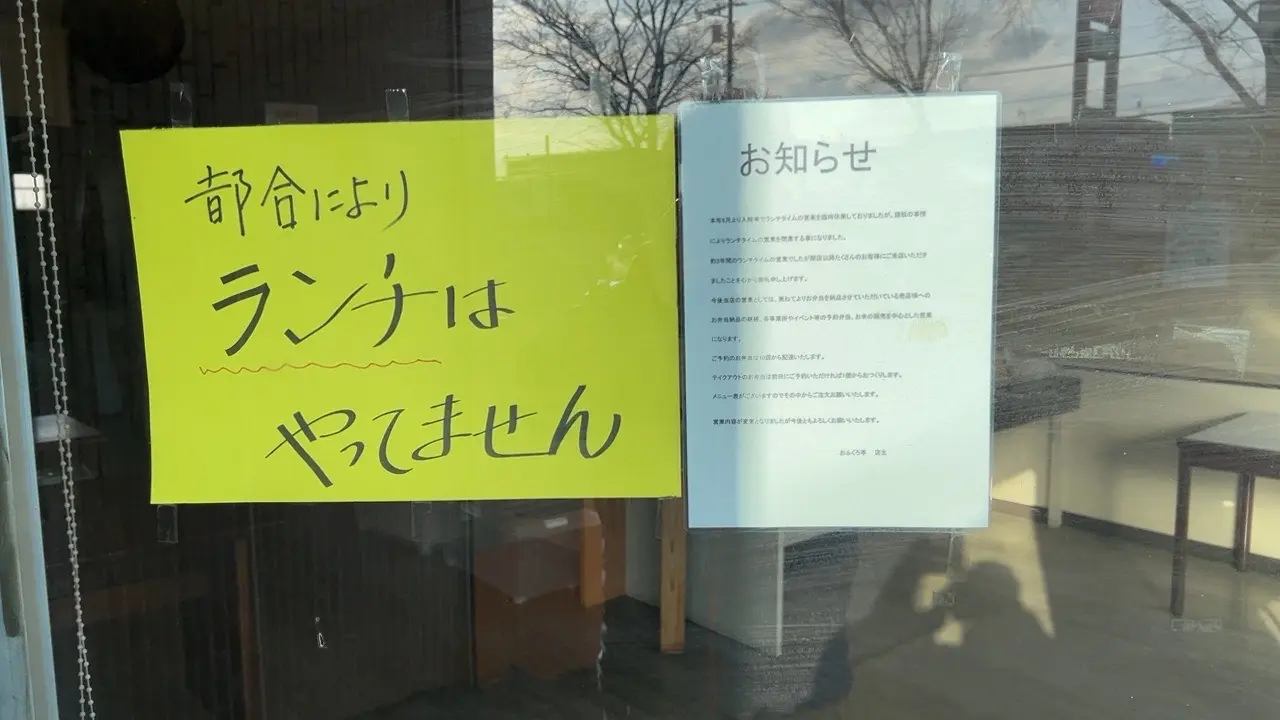 都合により
ランチは
やってません
お知らせ
本年6月より人材不でランチタイムの営業を臨時休業しておりましたが、諸般の事情
によりランチタイムの営業を閉業する事になりました。
約3年間のランチタイムの営業でしたが開店以降たくさんのお客様にご来店いただき
ましたことを心から御礼申し上げます。
今後当店の営業としては、兼ねてよりお弁当を納品させていただいている売店様への
お弁当納品の継続、各事業所やイベント等の予約弁当、お米の販売を中心とした営業
になります。
ご予約のお弁当は10個から配達いたします。
テイクアウトのお弁当は前日にご予約いただければ1個からおつくりします。
メニュー表がございますのでその中からご注文お願いいたします。
営業内容が変更となりましたが今後ともよろしくお願いいたします。
おふくろ亭 店主